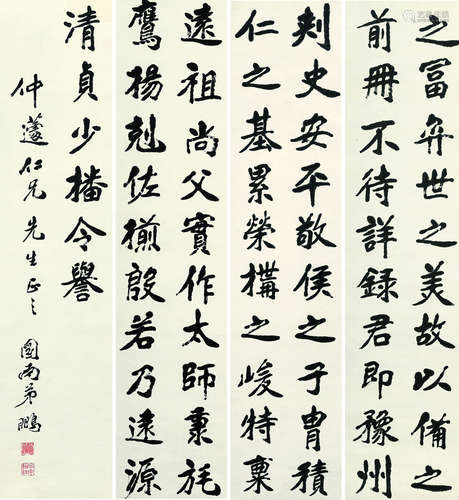 之冨弈世之美故以備之
前冊不待詳録君即豫州
刾史安平敬侯之子胄積
仁之基累榮構之峻特稟
遠祖尚父實作太師秉旄
鷹揚剋佐揃殷若乃遠源
清貞少播令譽
仲蘧仁兄先生正之 圖南弟鵬